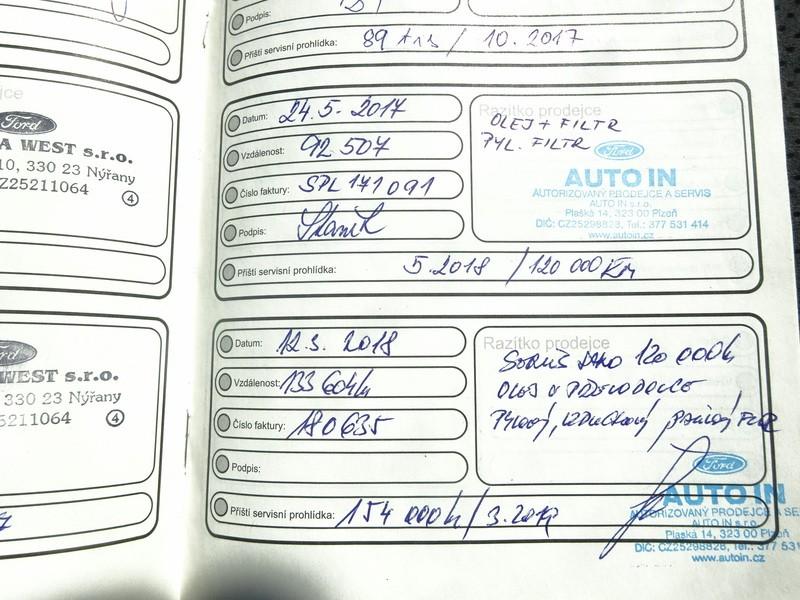 Podpis:
Příští servisní prohlídka: 89 tis / 10. 2017
jce
Ford
A WEST s.r.o.
10, 330 23 Nýřany
Z25211064
4
Datum: 24. 5. 2017
Vzdálenost: 92 507
Číslo faktury: SPL 171091
Podpis:
Razítko prodejce
OLEJ + FILTR
PYL. FILTR
Ford
AUTO IN
AUTORIZOVANÝ PRODEJCE A SERVIS
AUTO IN s.r.o.
Plaská 14, 323 00 Plzeň
DIČ: CZ25298828, Tel.: 377 531 414
www.autoin.cz
Příští servisní prohlídka: 5. 2018 / 120 000 Km
Ford
WEST s.r.o.
330 23 Nýřany
5211064
4
Datum: 12. 3. 2018
Vzdálenost: 133 604 k
Číslo faktury: 180635
Podpis:
Razítko prodejce
SERVIS JAKO 120 000 k
OLEJ V PŘEVODOVCE
Pylový, vzduchový,
Ford
AUTO IN
AUTORIZOVANÝ PRODEJCE A SE
AUTO IN s.r.o.
Plaská 14, 323 00 Plzeň
DIČ: CZ25298828, Tel.: 377 531
www.autoin.cz
Příští servisní prohlídka: 154 000 k / 3.